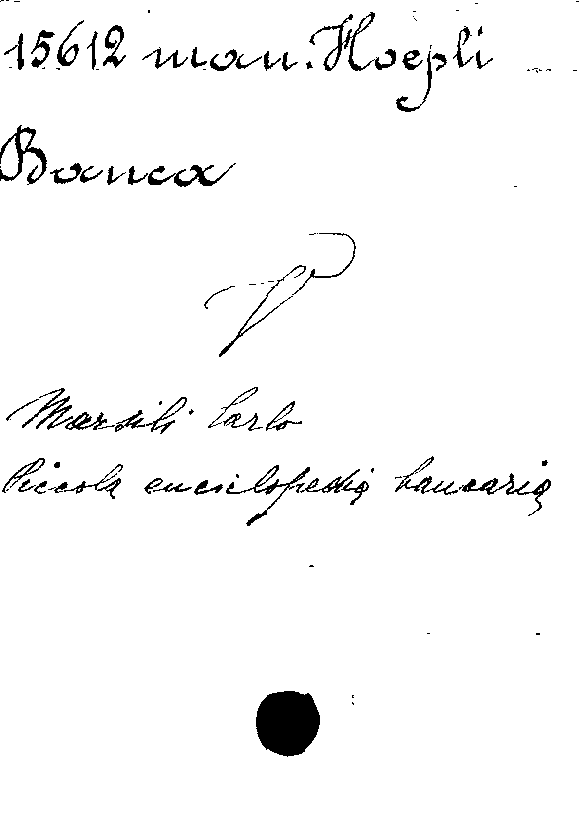 15612 man. Hoepli
Banca
V
Marsili Carlo
Piccola enciclopedia bancaria